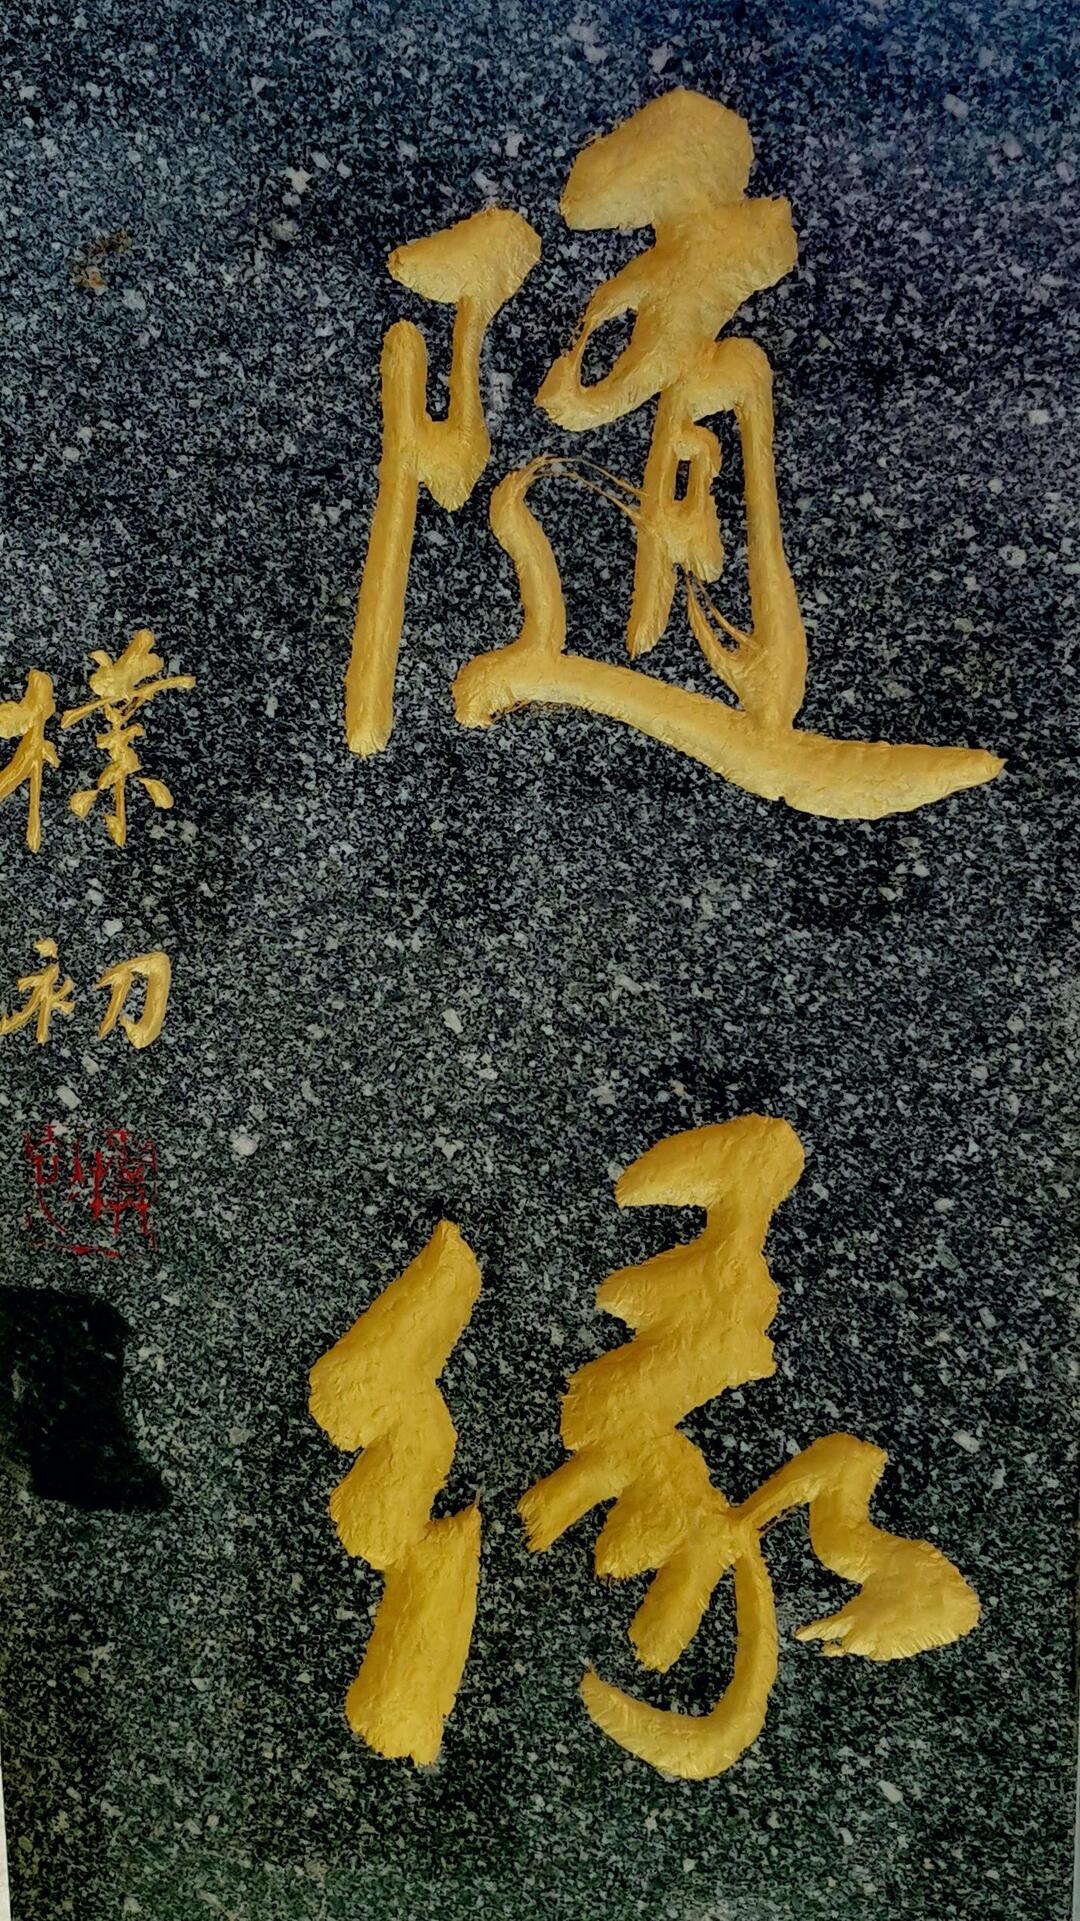 隨緣
樸初